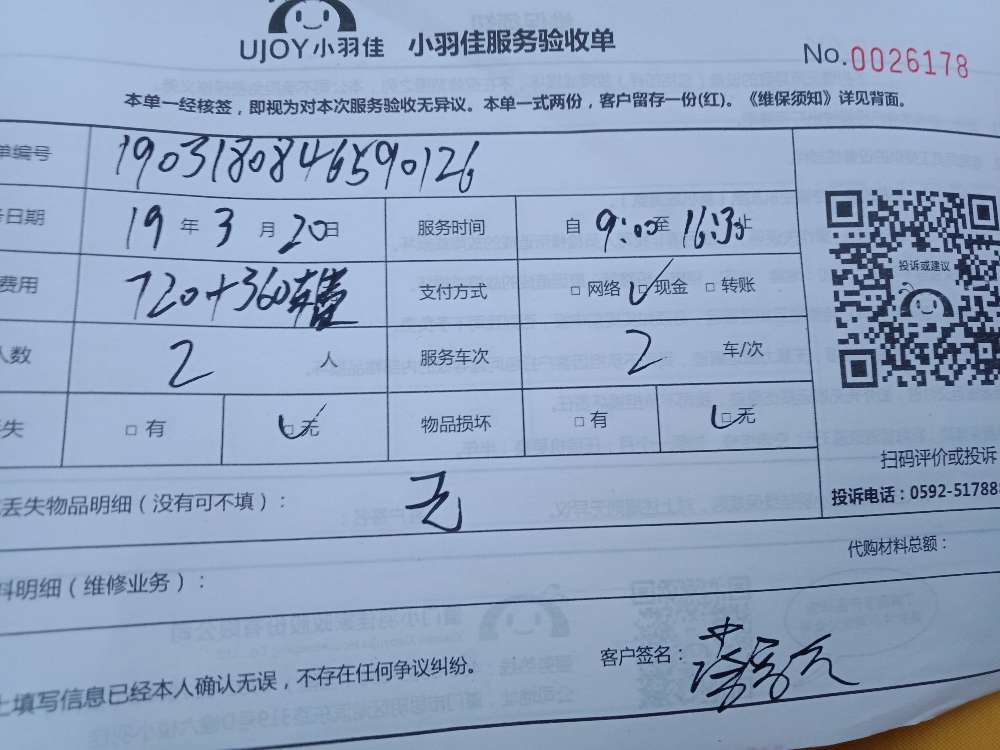 UJOY小羽佳 小羽佳服务验收单
No.0026178
本单一经核签，即视为对本次服务验收无异议。本单一式两份，客户留存一份(红)。《维保须知》详见背面。
单编号 1903180846590126
日期 19年3月20日 服务时间 自9:00至16:30止
费用 720+360 支付方式 □网络 □现金 □转账
人数 2人 服务车次 2车/次
失 □有 □无 物品损坏 □有 □无
丢失物品明细（没有可不填）： 无
料明细（维修业务）：
代购材料总额：
投诉或建议
扫码评价或投诉
投诉电话：0592-51788
上填写信息已经本人确认无误，不存在任何争议纠纷。
客户签名：